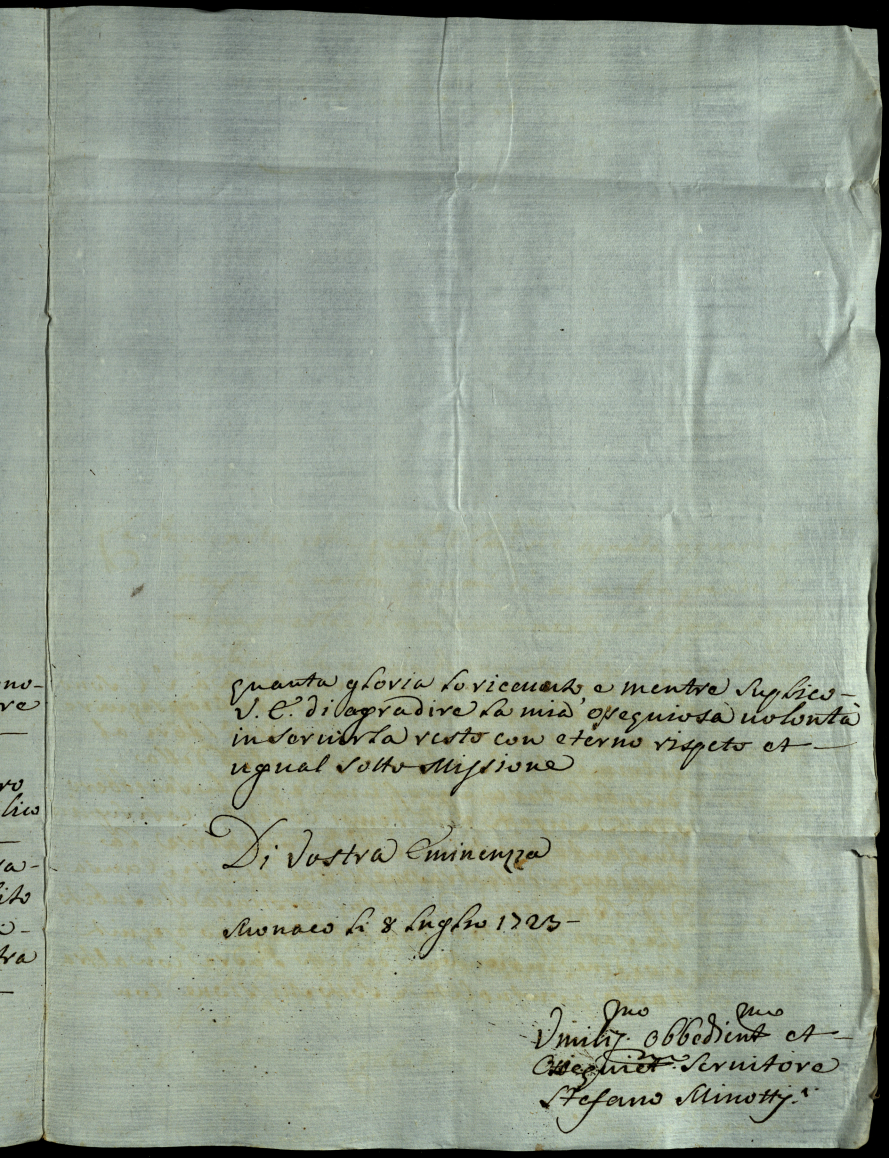 no-
re
ro
lico
ra-
ito
o-
tra
quanta gloria lo riceuuto e mentre suplico-
V. E. di agradire la mia' osequiosa uolontà
in seruirla resto con eterno rispeto et-
ugual sotto Missione
Di Vostra Eminenza
Monaco li 8 luglio 1723-
Vmiliss.mo obbedient.mo et-
Ossequiet.mo Seruitore
Stefano Minottj